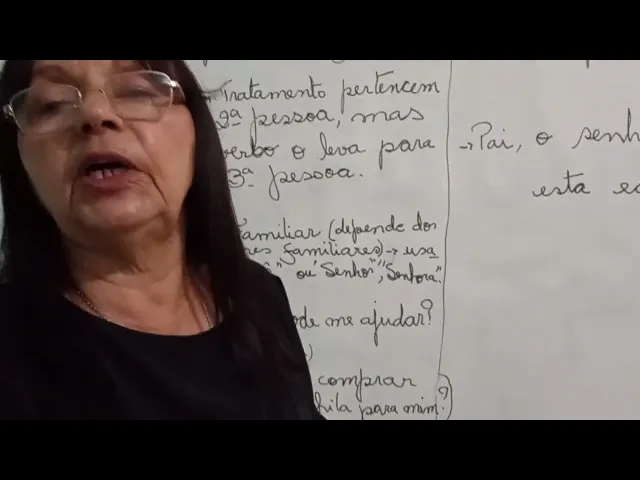 Tratamento pertencem
2ª pessoa, mas
verbo o leva para
3ª pessoa.
familiar (depende dos
res familiares) → usa
" ou "Senhor", "Senhora".
ode me ajudar?
comprar
hila para mim?)
→ Pai, o senh
esta ed